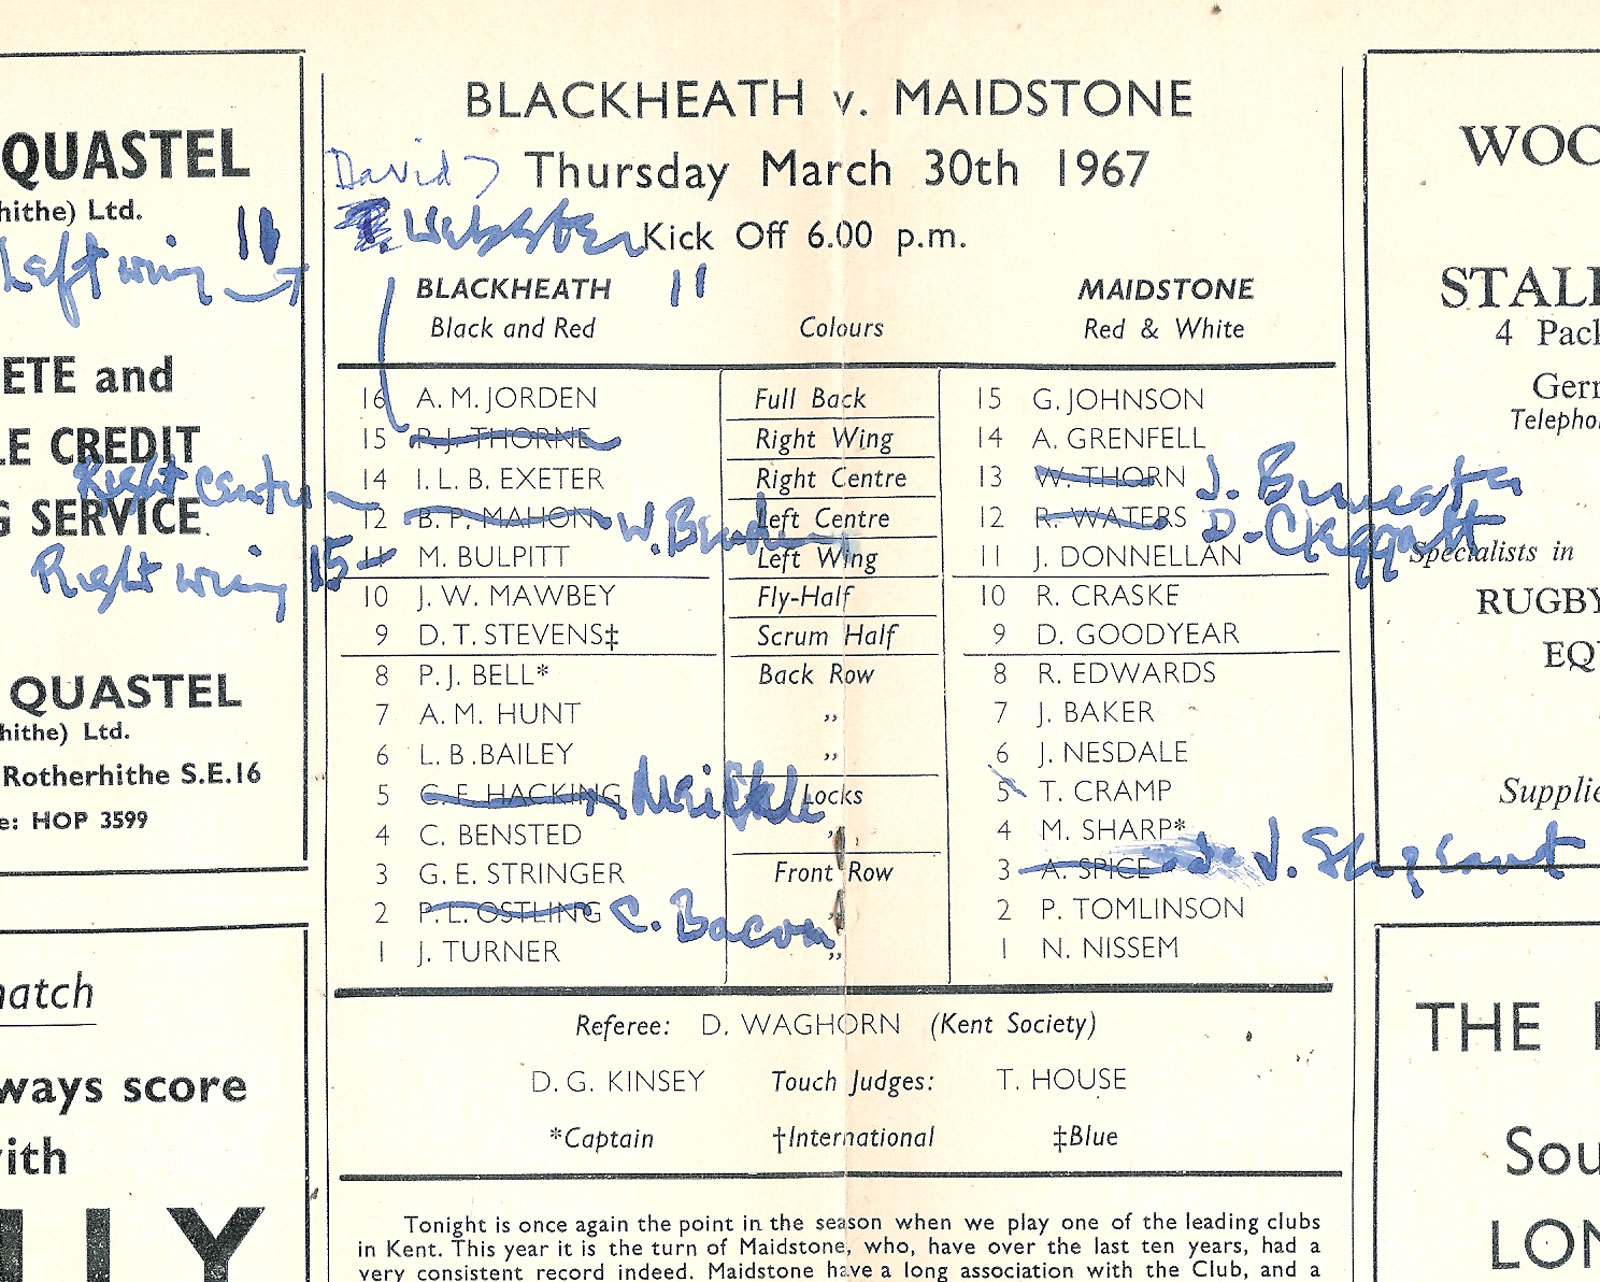 QUASTEL
hithe) Ltd.
Left wing 11
ETE and
LE CREDIT
Right Centre
G SERVICE
Right wing 15
QUASTEL
hithe) Ltd.
Rotherhithe S.E.16
e: HOP 3599
natch
ways score
ith
LLY
BLACKHEATH v. MAIDSTONE
David
Thursday March 30th 1967
Webster
Kick Off 6.00 p.m.
11
BLACKHEATH MAIDSTONE
Black and Red Colours Red & White
16 A. M. JORDEN Full Back 15 G. JOHNSON
15 P. J. THORNE Right Wing 14 A. GRENFELL
14 I. L. B. EXETER Right Centre 13 W. THORN J.
12 B. P. MAHON W. Left Centre 12 R. WATERS D. Cleggatt
11 M. BULPITT Left Wing 11 J. DONNELLAN
10 J. W. MAWBEY Fly-Half 10 R. CRASKE
9 D. T. STEVENS‡ Scrum Half 9 D. GOODYEAR
8 P. J. BELL* Back Row 8 R. EDWARDS
7 A. M. HUNT ,, 7 J. BAKER
6 L. B. BAILEY ,, 6 J. NESDALE
5 C. E. HACKING Meikle Locks 5 T. CRAMP
4 C. BENSTED ,, 4 M. SHARP*
3 G. E. STRINGER Front Row 3 A. SPICE J. Sergeant
2 P. L. OSTLING C. Bacon ,, 2 P. TOMLINSON
1 J. TURNER ,, 1 N. NISSEM
Referee: D. WAGHORN (Kent Society)
D. G. KINSEY Touch Judges: T. HOUSE
*Captain †International ‡Blue
Tonight is once again the point in the season when we play one of the leading clubs
in Kent. This year it is the turn of Maidstone, who, have over the last ten years, had a
very consistent record indeed. Maidstone have a long association with the Club, and a
WOO
STALL
4 Pack
Gerr
Telepho
Specialists in
RUGBY
EQ
Supplie
THE
Sou
LON